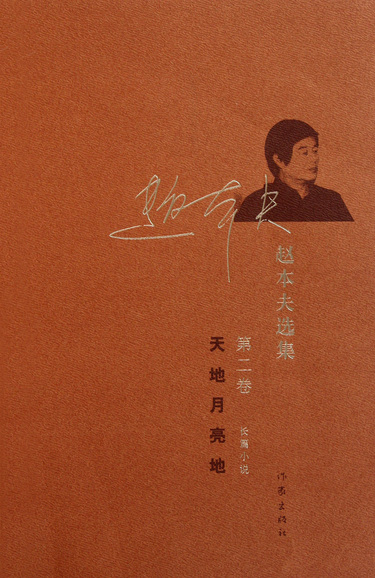 赵本夫
赵本夫选集
第二卷
长篇小说
天地月亮地
作家出版社